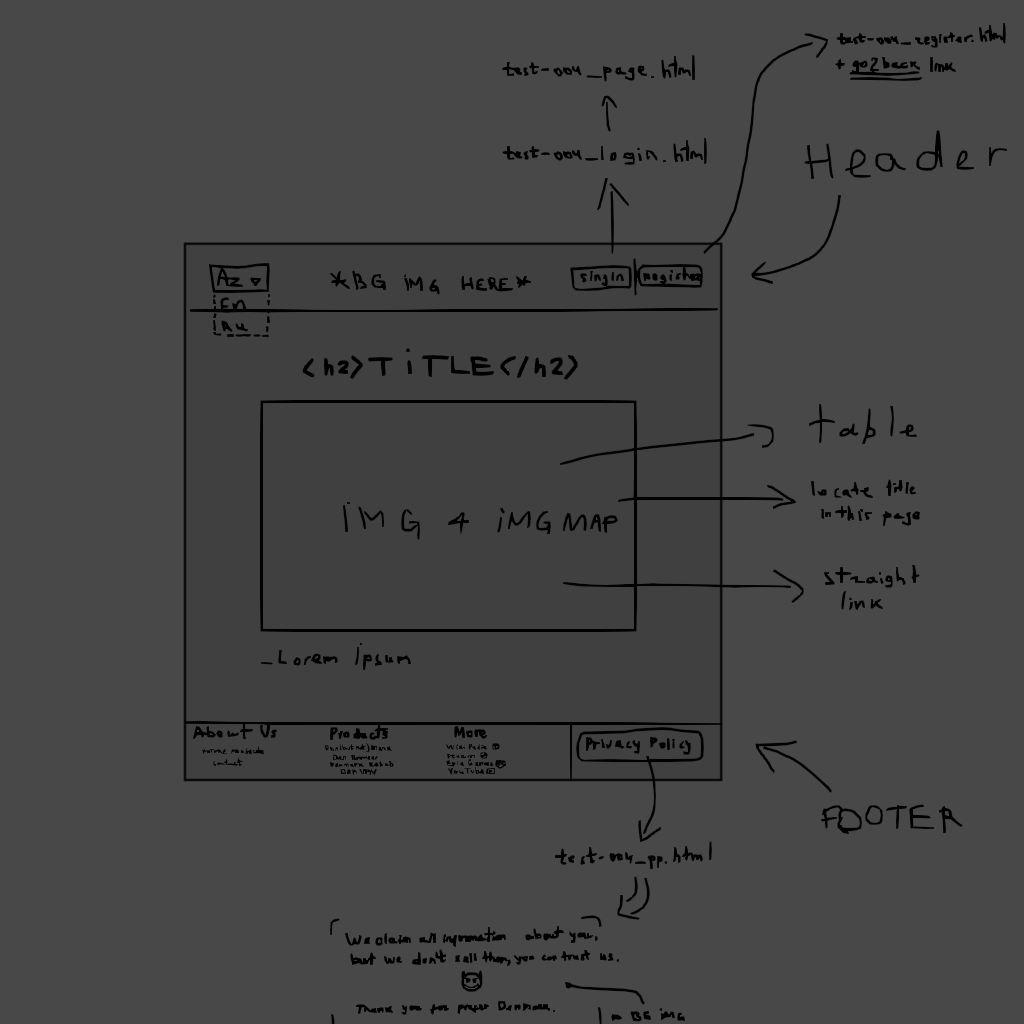 test-004_register.html
+ go2back link
test-004_page.html
test-004_login.html
Header
Az
En
Ru
*BG iMG HERE*
singin
register
<h2>TiTLE</h2>
iMG 4 iMGMAP
table
locate title
in this page
straight
link
_Lorem Ipsum
About Us
contact
Products
More
Privacy Policy
FOOTER
test-004_pp.html
We claim all information about you,
but we don't sell them, you can trust us.
Thank you for prefer Denmark.
BG iMG